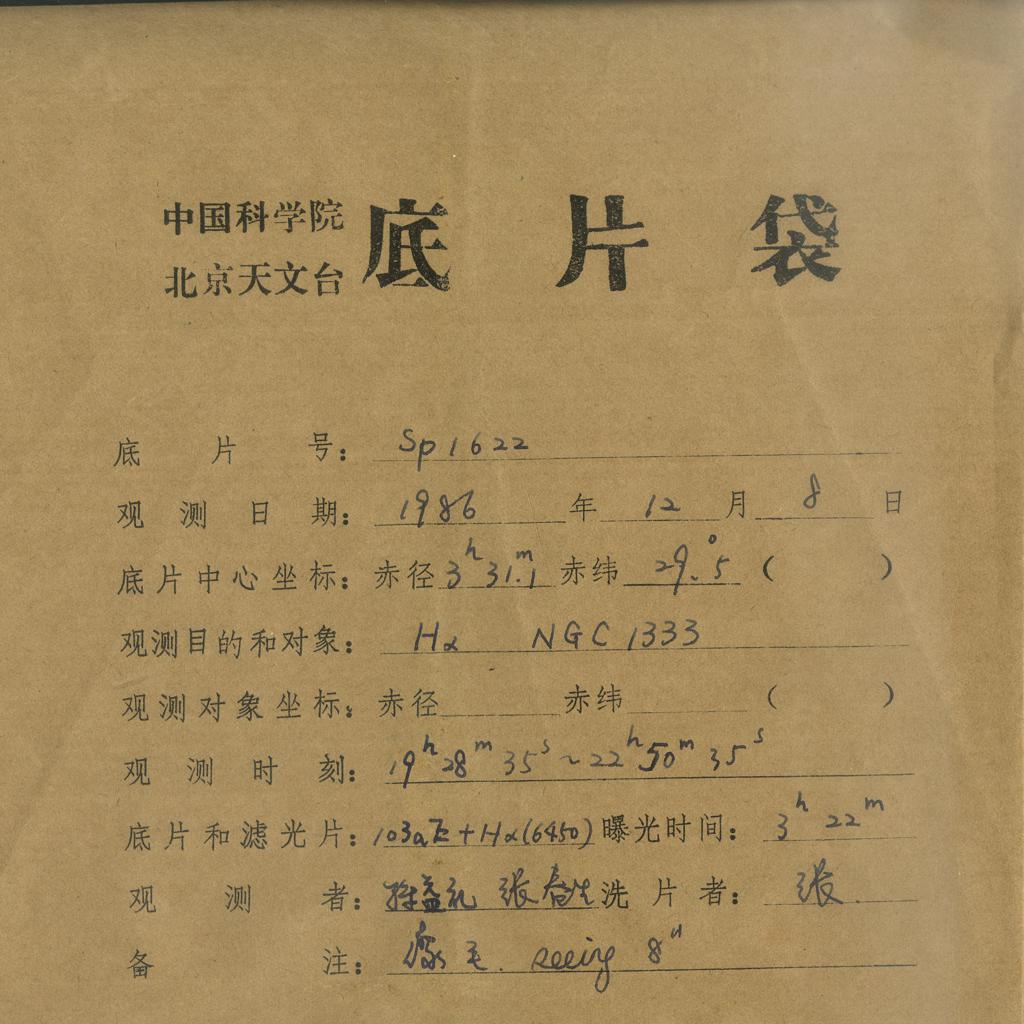 中国科学院
北京天文台
底片袋
底片号: Sp1622
观测日期: 1986年12月8日
底片中心坐标: 赤径 3h 31.1m 赤纬 29°.5 ( )
观测目的和对象: Hα NGC 1333
观测对象坐标: 赤径 赤纬 ( )
观测时刻: 19h 28m 35s ~ 22h 50m 35s
底片和滤光片: 103aE + Hα(6450) 曝光时间: 3h 22m
观测者: 益礼 张春生 洗片者: 张
备注: seeing 8"